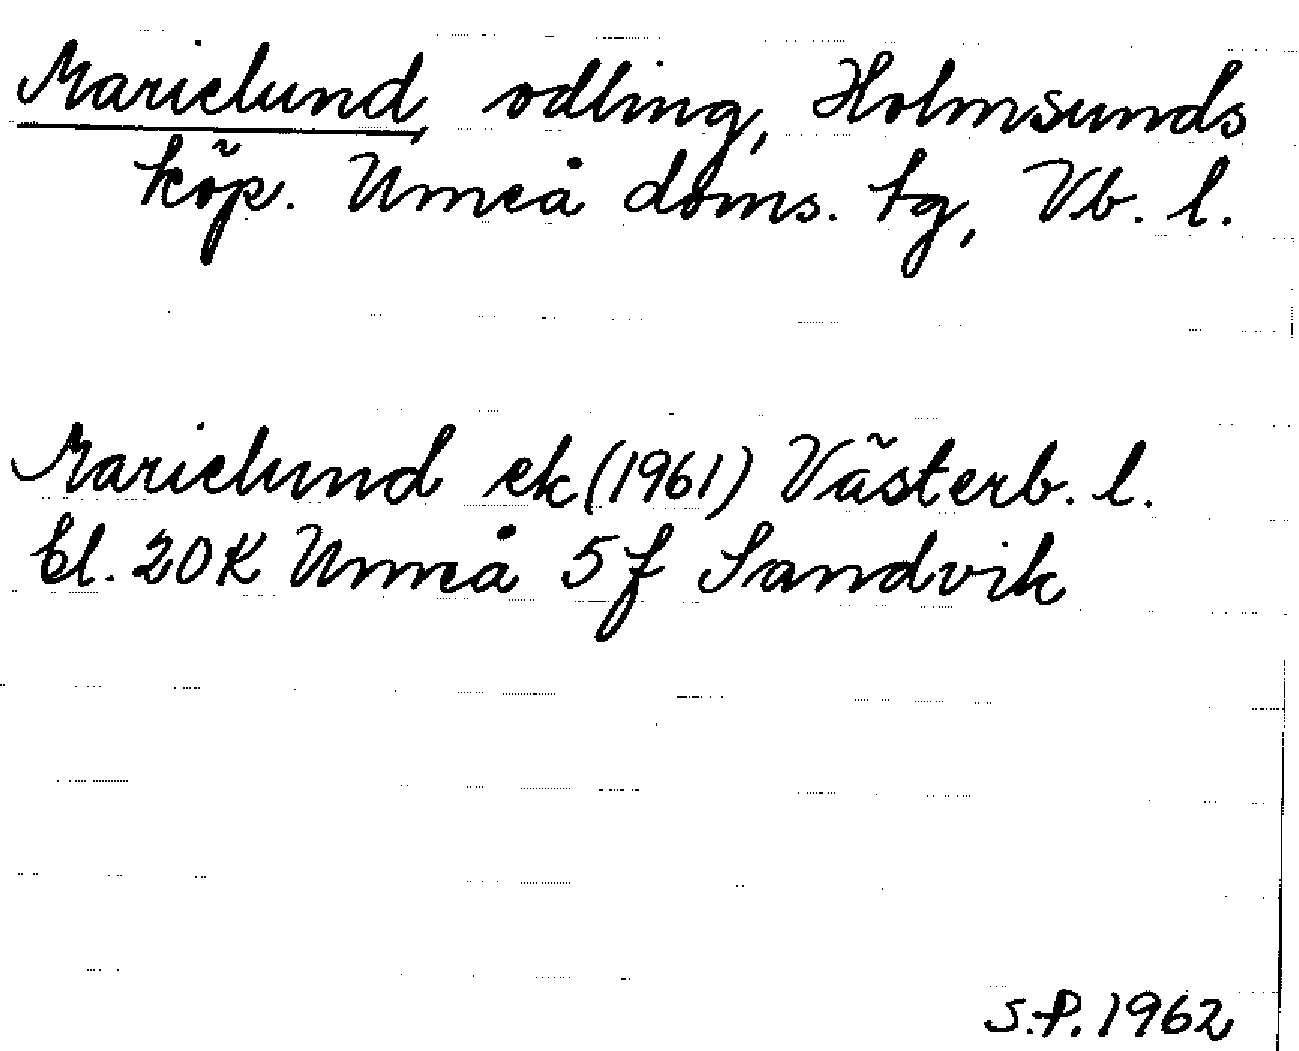 Marielund, odling, Holmsunds
köp. Umeå doms. tg, Vb. l.
Marielund ek (1961) Västerb. l.
bl. 20K Umeå 5f Sandvik
S.P. 1962